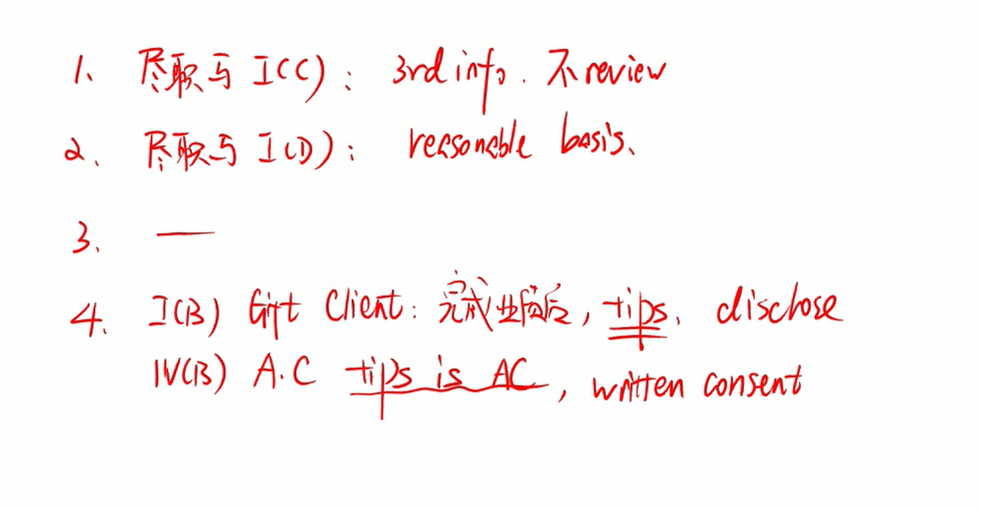 1. 尽职与 I(C): 3rd info. 不 review
2. 尽职与 I(D): reasonable basis、
3. —
4. I(B) Gift Client: 完成业务后, tips. disclose
IV(B) A.C tips is AC, written consent